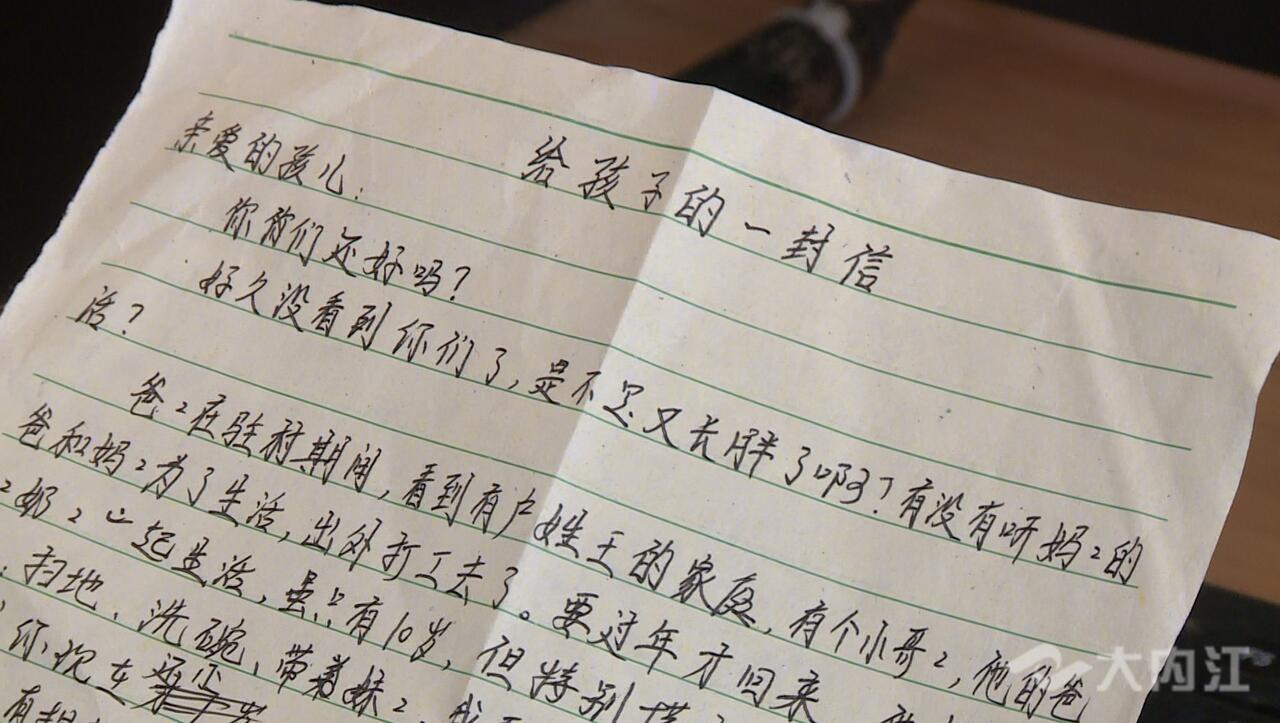 给孩子的一封信
亲爱的孩儿:
你们还好吗?
好久没看到你们了,是不是又长胖了啊?有没有听妈2的
话?
爸2在驻村期间,看到有户姓王的家庭,有个小哥2,他的爸
爸和妈2为了生活,出外打工去了。要过年才回来
2奶2一起生活,虽只有10岁,但特别
扫地、洗碗、带着妹2,
你现在
有
大内江